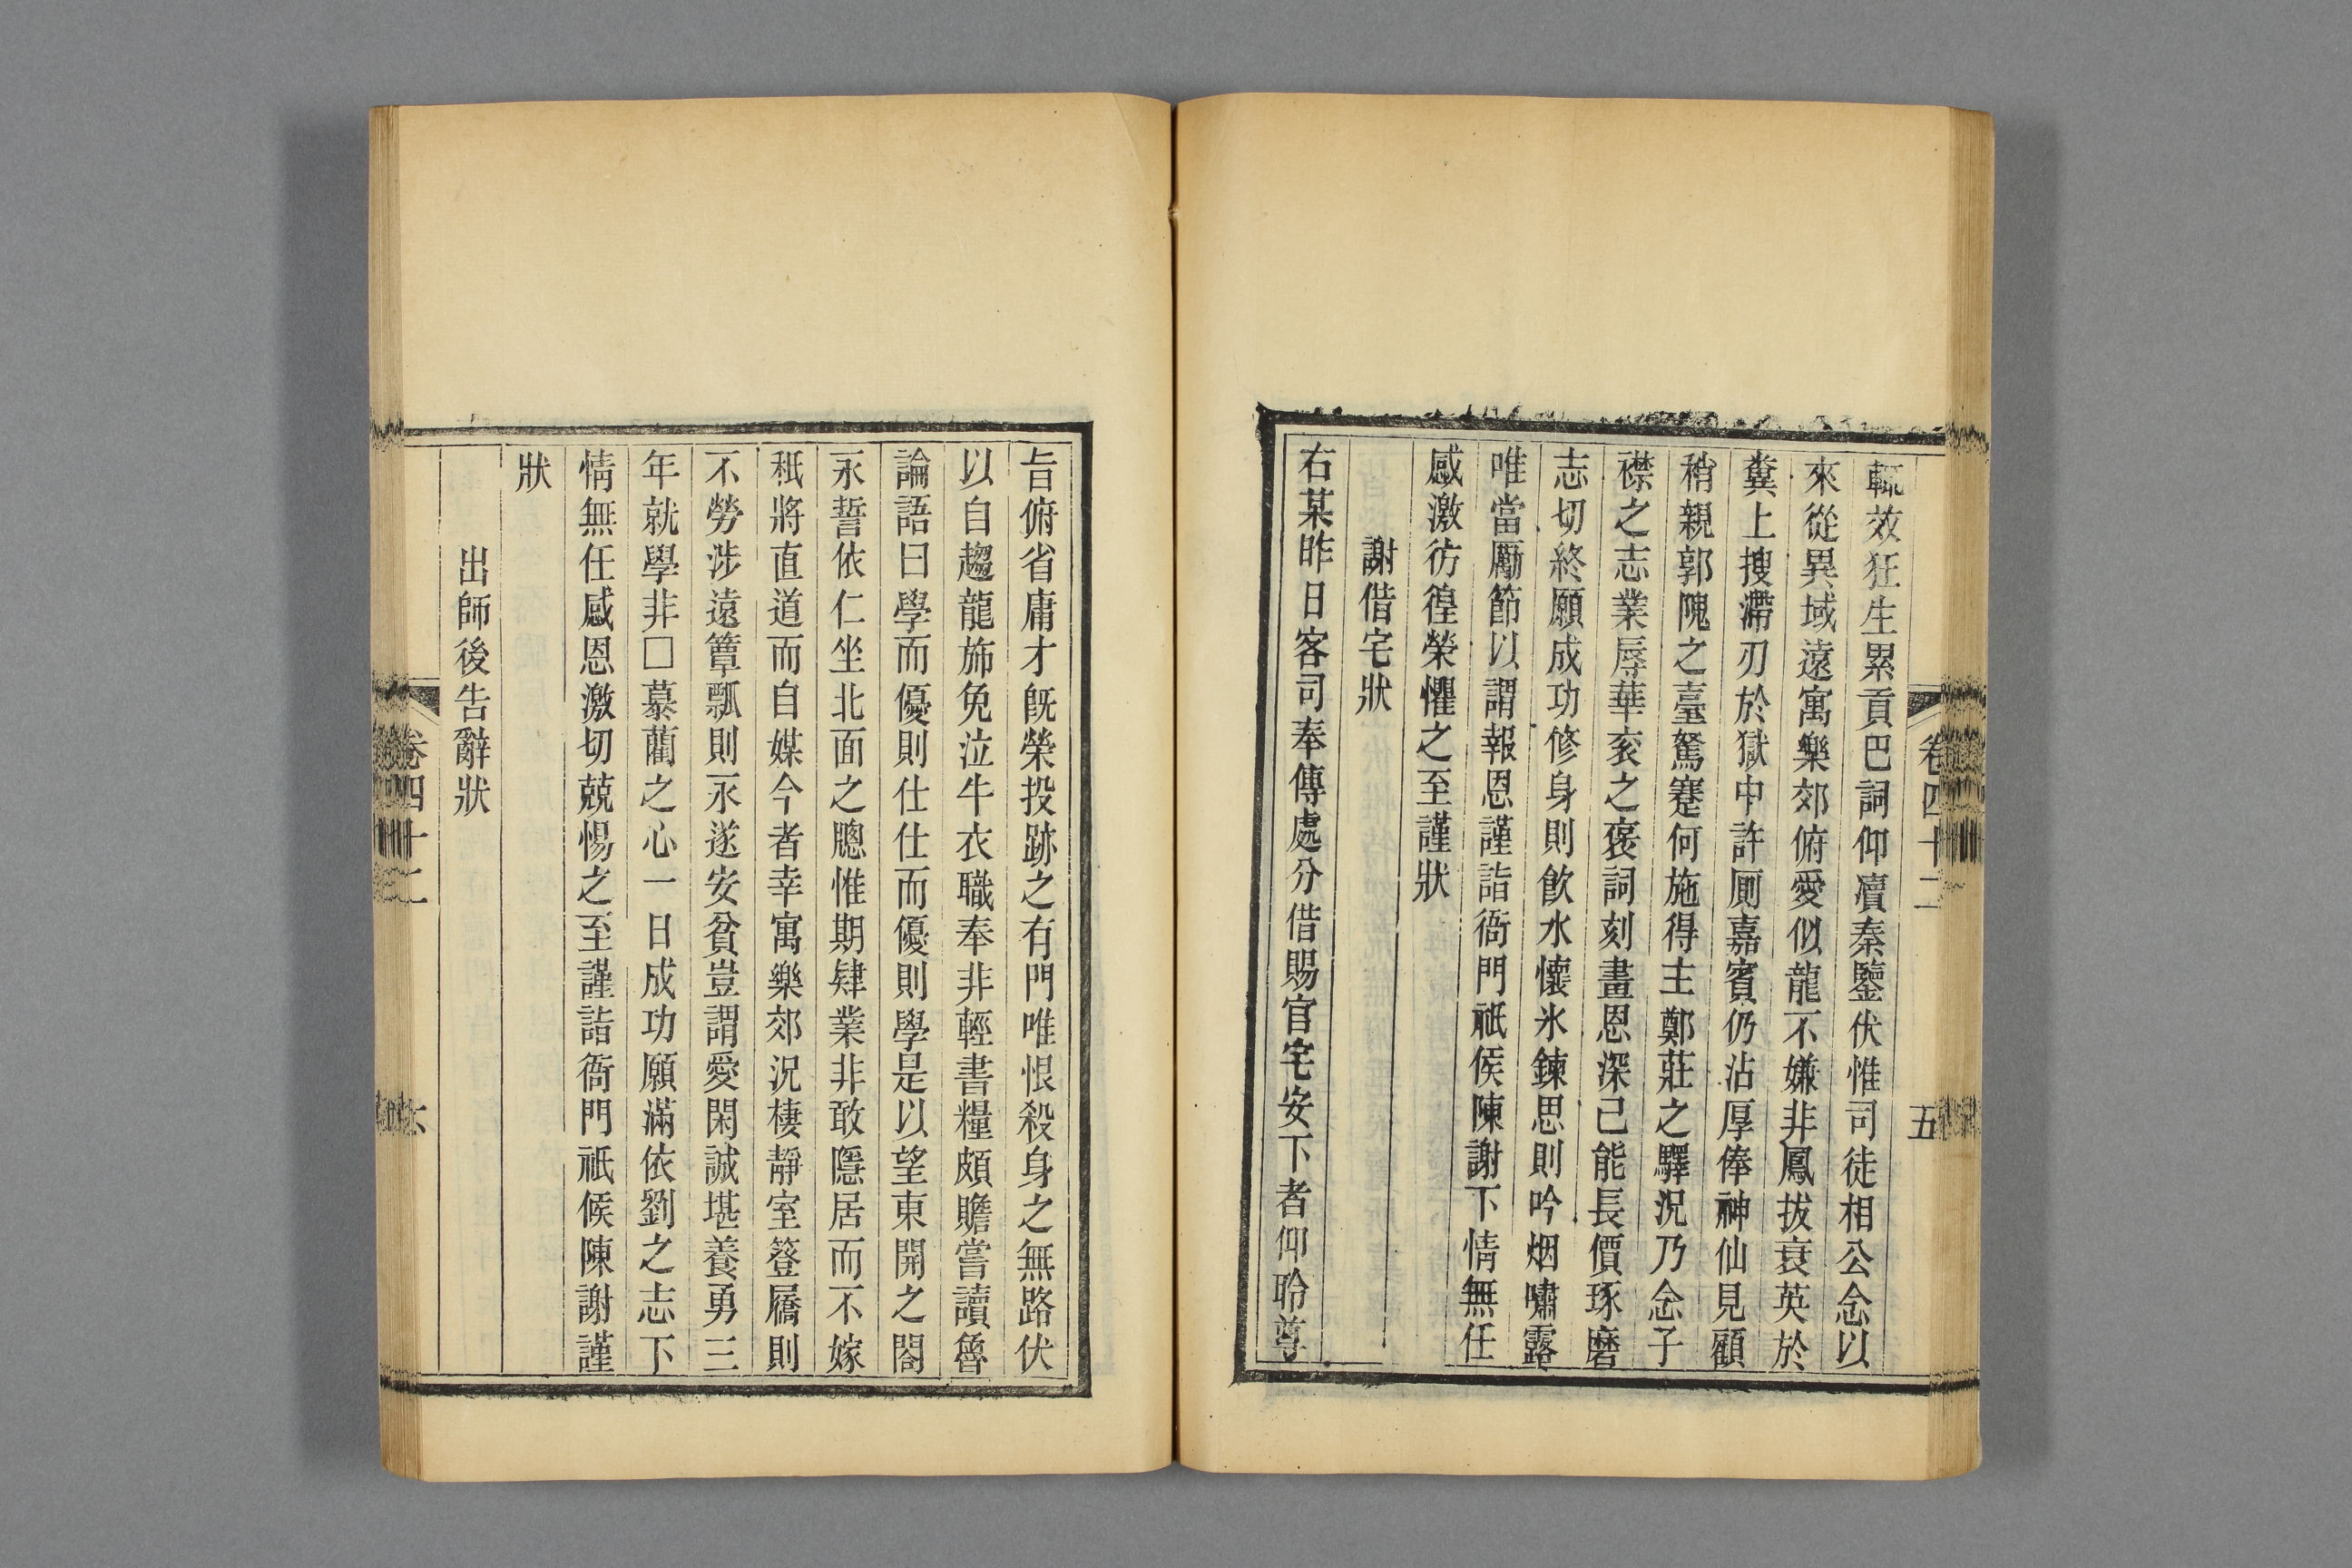 卷四十二
五
輒效狂生累貢巴詞仰瀆秦鑒伏惟司徒相公念以
來從異域遠寓樂郊俯愛似龍不嫌非鳳拔衰英於
糞上搜滯刃於獄中許厠嘉賓仍沾厚俸神仙見顧
稍親郭隗之臺駑蹇何施得主鄭莊之驛況乃念子
襟之志業辱華衮之褒詞刻畫恩深己能長價琢磨
志切終願成功修身則飮水懷氷鍊思則吟烟嘯露
唯當厲節以謂報恩謹詣衙門祇候陳謝下情無任
感激彷徨榮懼之至謹狀
謝借宅狀
右某昨日客司奉傳處分借賜官宅安下者仰聆尊
旨俯省庸才旣榮投跡之有門唯恨殺身之無路伏
以自趨龍斾免泣牛衣職奉非輕書糧頗贍嘗讀魯
論語曰學而優則仕仕而優則學是以望東開之閤
永誓依仁坐北面之牕惟期肄業非敢隱居而不嫁
秖將直道而自媒今者幸寓樂郊況棲靜室簦屩則
不勞涉遠簞瓢則永遂安貧豈謂愛閑誠堪養勇三
年就學非□慕藺之心一日成功願滿依劉之志下
情無任感恩激切兢惕之至謹詣衙門祇候陳謝謹
狀
出師後告辭狀
卷四十二
六